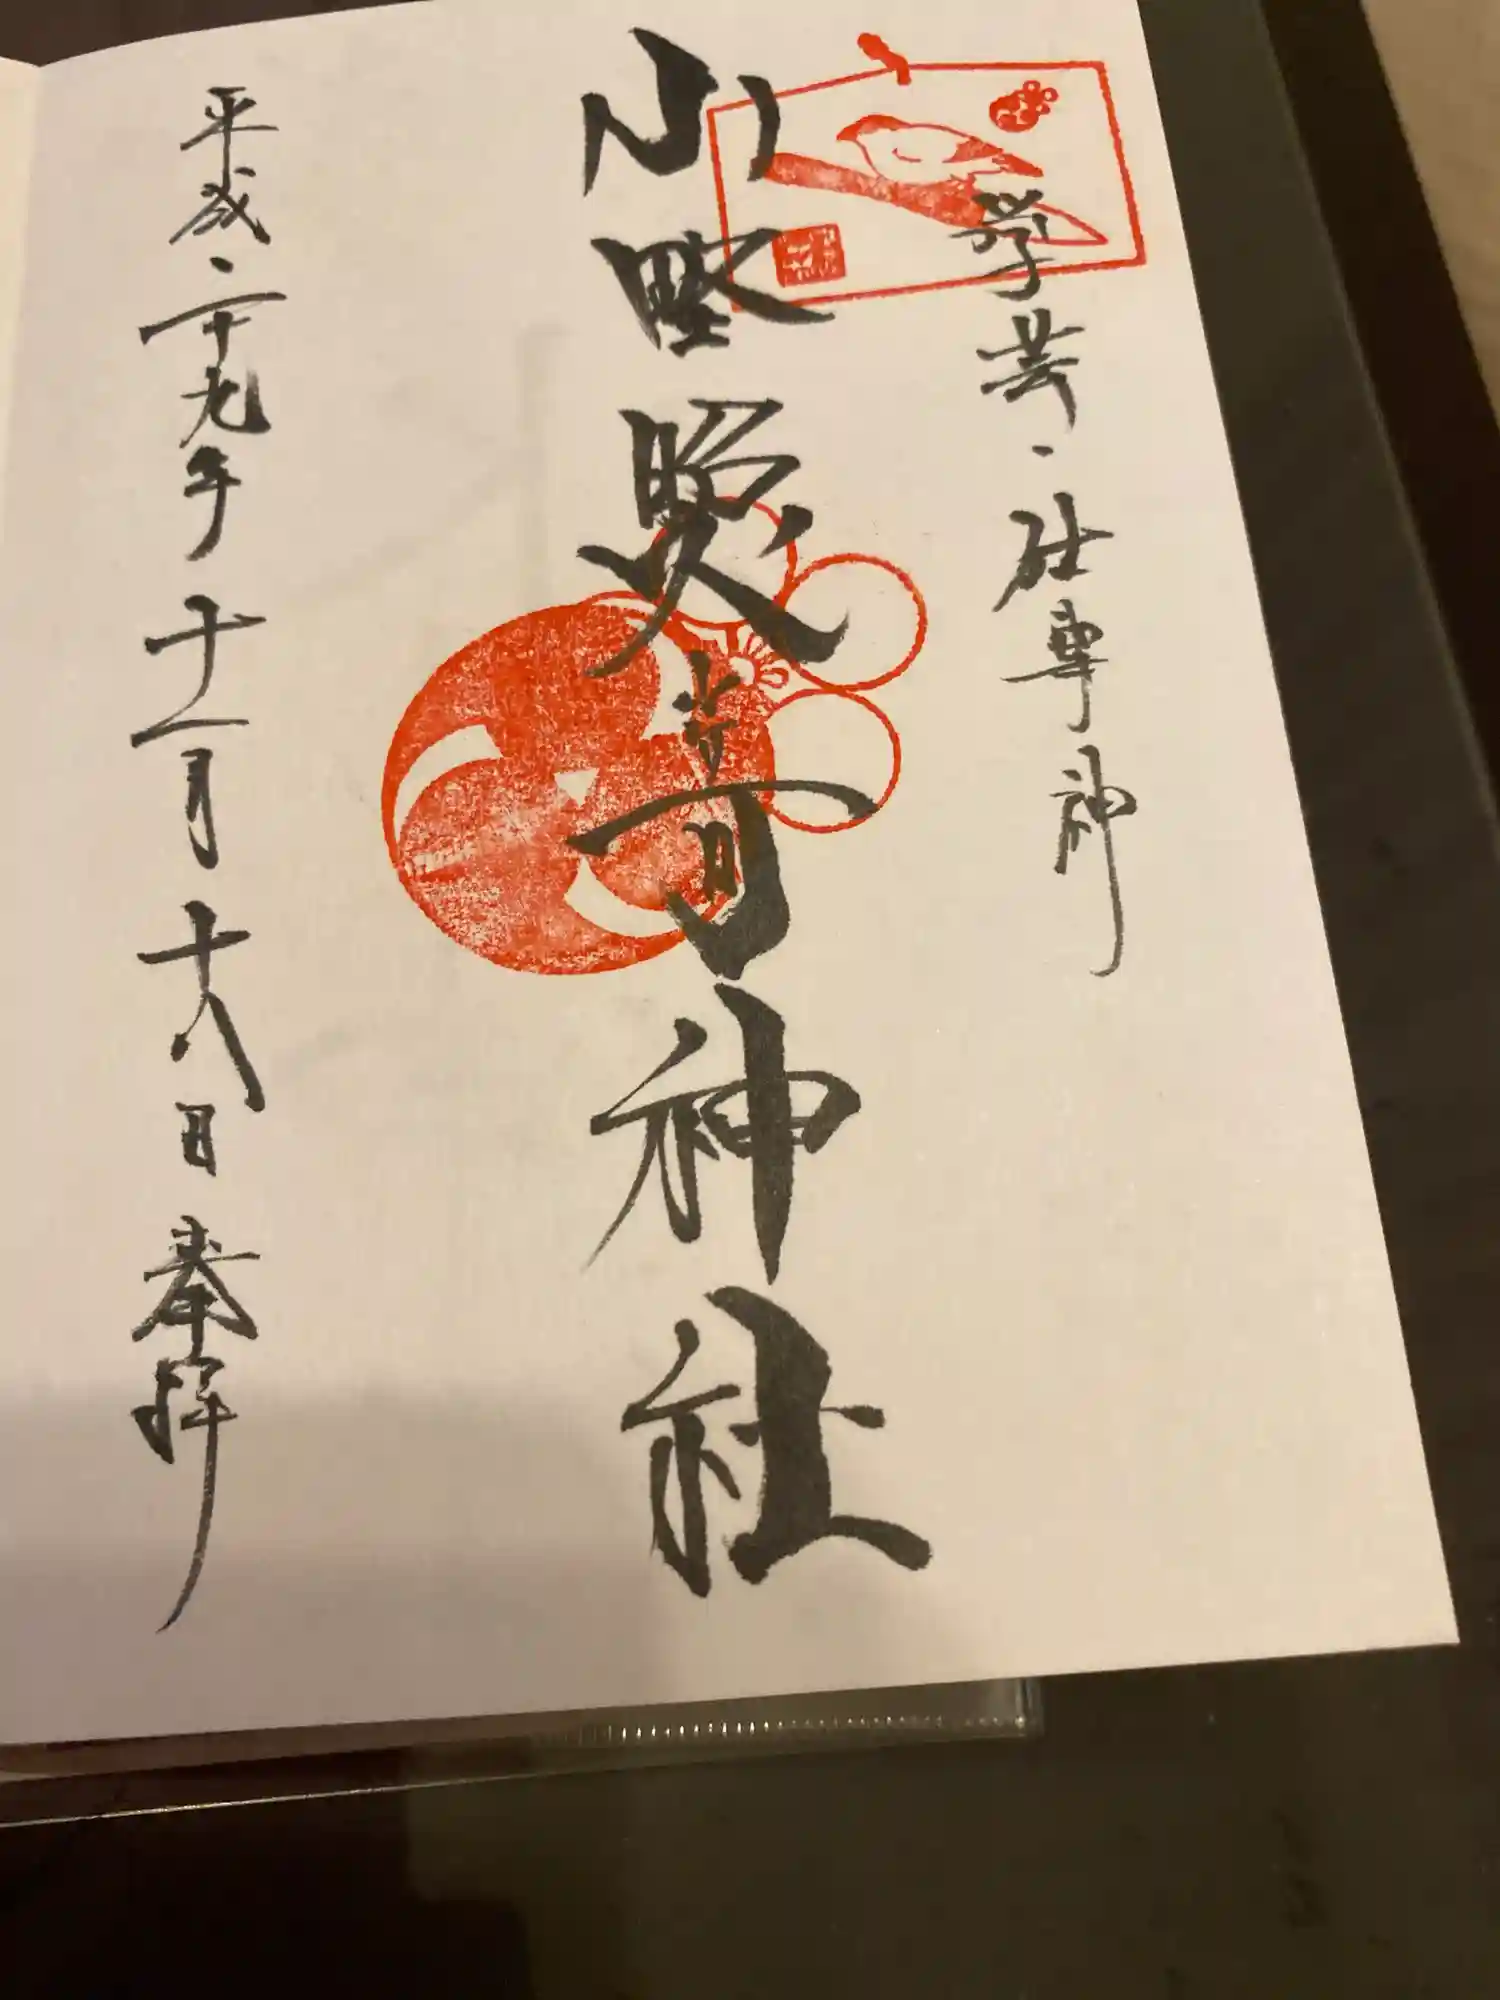 学芸・仕事神
小野照嵜神社
平成二十九年十一月十八日奉拝